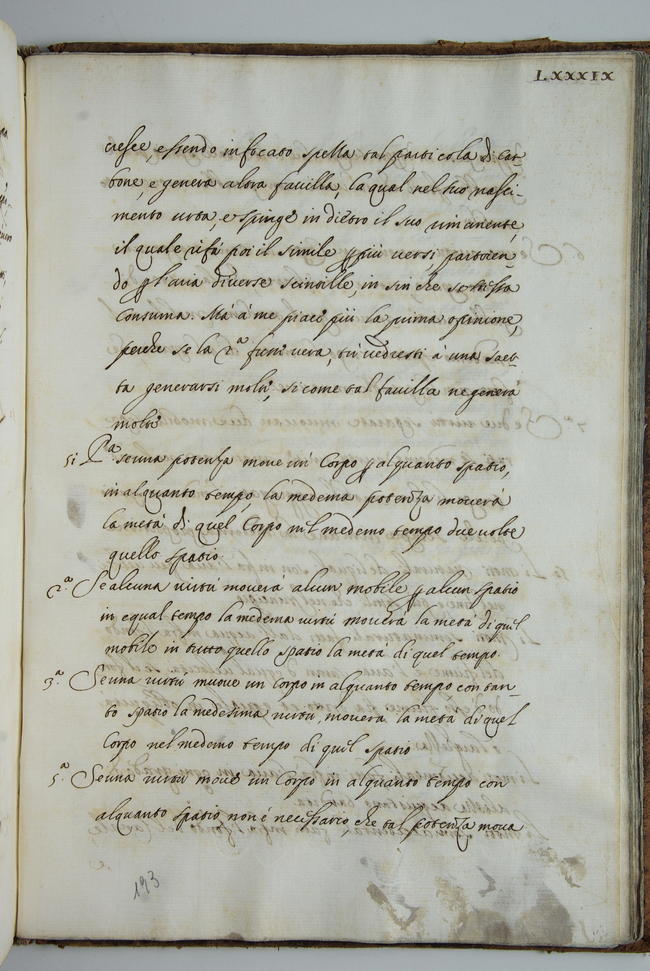 LXXXIX
cresce, essendo infocato spessa tal particola di car-
bone, e genera altra favilla, la qual nel suo nasci-
mento urta, e spinge in dietro il suo rimanente,
il quale rifà poi il simile p più versi, partorien-
do p l'aria diverse scintille, in sin che se stessa
consuma. Mà à me piace più la prima opinione,
perche se la 2.ª fussi vera, tù vedresti à una saet-
ta generarsi molti, si come tal favilla ne genera
molti
51 P.ª se una potenza move un' Corpo p alquanto spatio,
in alquanto tempo, la medema potenza moverà
la metà di quel Corpo nel medemo tempo due volte
quello spatio.
2.ª Se alcuna virtù moverà alcun mobile p alcun spatio
in equal tempo la medema virtù moverà la metà di quel
mobile in tutto quello spatio la metà di quel tempo.
3.ª Se una virtù muove un Corpo in alquanto tempo con tan-
to spatio la medesima virtù, moverà la metà di quel
Corpo nel medemo tempo di quel spatio
5.ª Se una virtù move un Corpo in alquanto tempo con
alquanto spatio non è necessario, che tal potenza mova
193